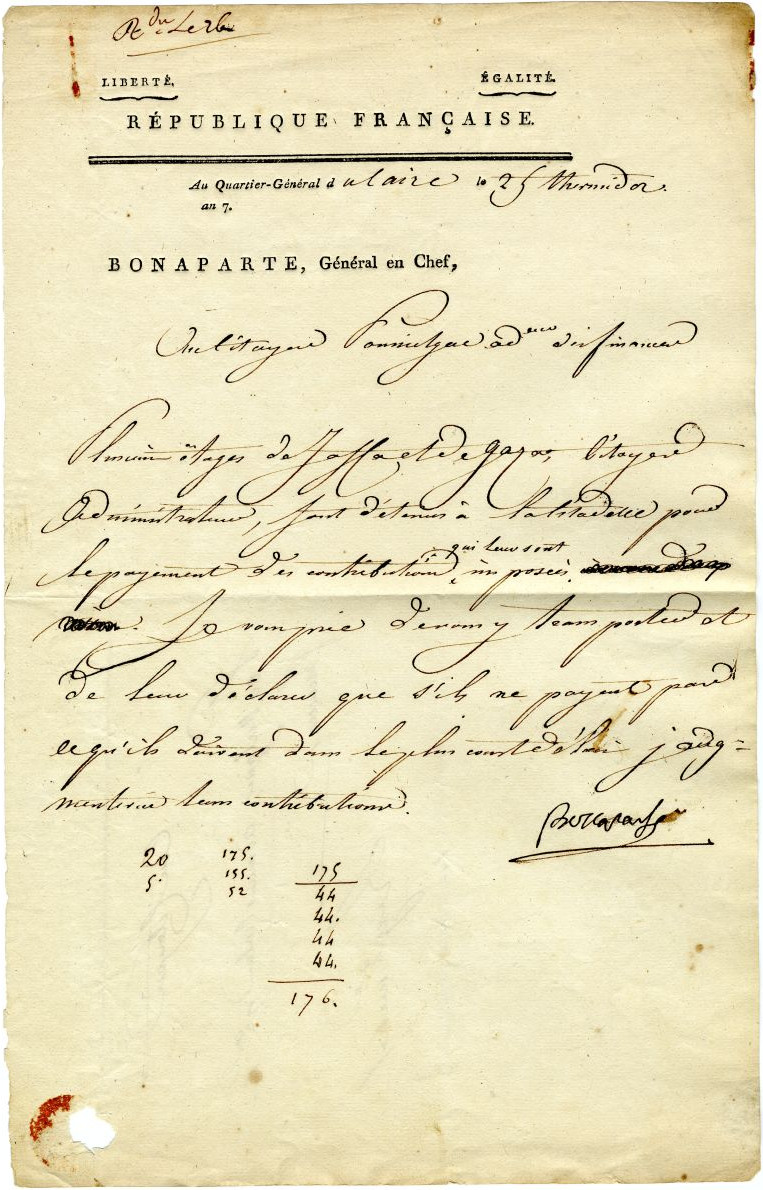 LIBERTÉ. ÉGALITÉ.
RÉPUBLIQUE FRANÇAISE.
Au Quartier-Général d u Caire le 25 thermidor
an 7.
BONAPARTE, Général en Chef,
Au Citoyen Poussielgue ad eur des finances
Plusieurs ôtages de Jaffa et de gaza, Citoyen
Administrateur, sont détenus à la Citadelle pour
le payement des contributions qui leur sont imposées
Je vous prie de vous y transporter et
de leur déclarer que s'ils ne payent pas
ce qu'ils doivent dans le plus court délai j'aug=
menterai leurs contributions.
Bonaparte
20 175. 175
5. 155. 44
52 44.
44
44.
176.